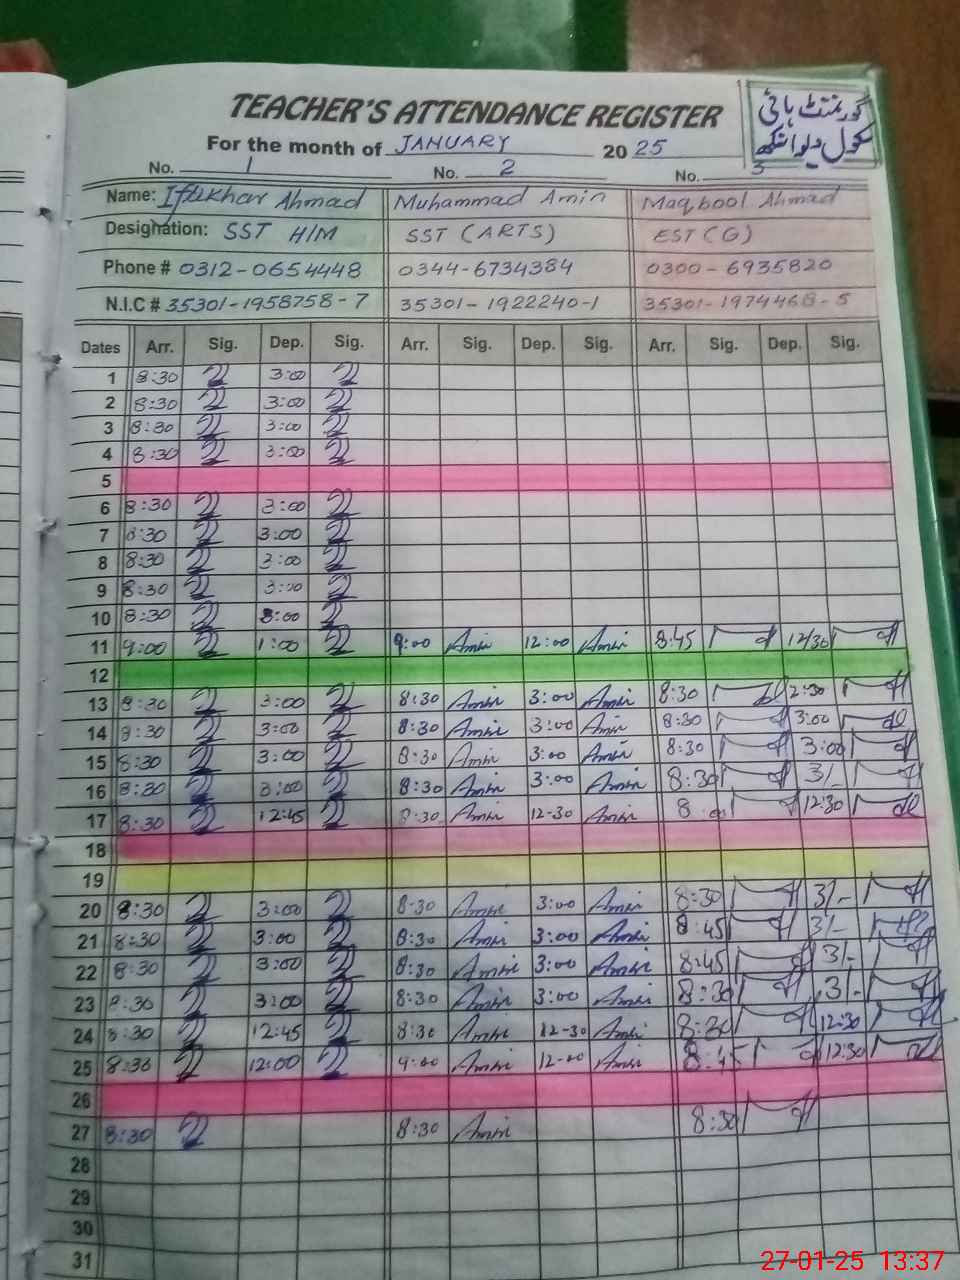 TEACHER'S ATTENDANCE REGISTER
گورنمنٹ ہائی
سکول دیوا سنگھ
For the month of JANUARY 2025
No. 1 No. 2 No. 3
Name: Iftikhar Ahmad Muhammad Amin Maqbool Ahmad
Designation: SST H/M SST (ARTS) EST (G)
Phone # 0312-0654448 0344-6734384 0300-6935820
N.I.C # 35301-1958758-7 35301-1922240-1 35301-1974468-5
Dates Arr. Sig. Dep. Sig. Arr. Sig. Dep. Sig. Arr. Sig. Dep. Sig.
1 8:30 3:00
2 8:30 3:00
3 8:30 3:00
4 8:30 3:00
5
6 8:30 3:00
7 8:30 3:00
8 8:30 3:00
9 8:30 3:00
10 8:30 3:00
11 9:00 1:00 9:00 Amin 12:00 Amin 8:45 12/30
12
13 8:30 3:00 8:30 Amin 3:00 Amin 8:30 2:30
14 8:30 3:00 8:30 Amin 3:00 Amin 8:30 3:00
15 8:30 3:00 8:30 Amin 3:00 Amin 8:30 3:00
16 8:30 3:00 8:30 Amin 3:00 Amin 8:30 3/-
17 8:30 12:45 8:30 Amin 12-30 Amin 12:30
18
19
20 8:30 3:00 8:30 Amin 3:00 Amin 8:30 3/-
21 8:30 3:00 8:30 Amin 3:00 Amin 8:45 3/-
22 8:30 3:00 8:30 Amin 3:00 Amin 8:45 3/-
23 8:30 3:00 8:30 Amin 3:00 Amin 8:30 3/-
24 8:30 12:45 8:30 Amin 12-30 Amin 8:30 12:30
25 8:30 12:00 9:00 Amin 12-00 Amin 8:45 12:30
26
27 8:30 8:30 Amin 8:30
28
29
30
31
27-01-25 13:37